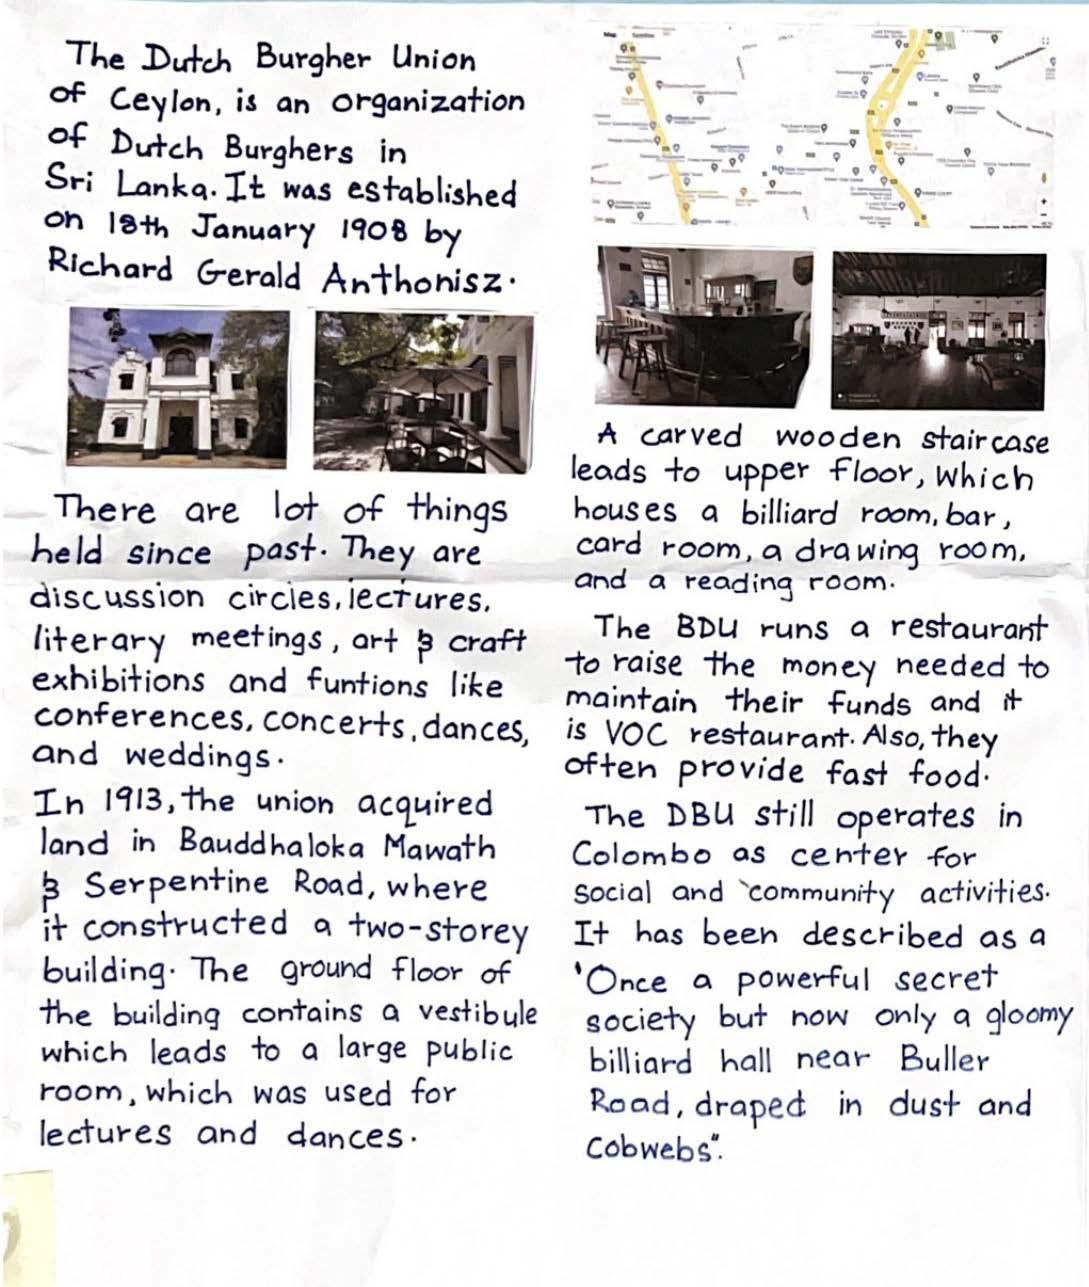 The Dutch Burgher Union
of Ceylon, is an organization
of Dutch Burghers in
Sri Lanka. It was established
on 18th January 1908 by
Richard Gerald Anthonisz.
There are lot of things
held since past. They are
discussion circles, lectures,
literary meetings, art & craft
exhibitions and funtions like
conferences, concerts, dances,
and weddings.
In 1913, the union acquired
land in Bauddhaloka Mawath
& Serpentine Road, where
it constructed a two-storey
building. The ground floor of
the building contains a vestibule
which leads to a large public
room, which was used for
lectures and dances.
A carved wooden staircase
leads to upper floor, which
houses a billiard room, bar,
card room, a drawing room,
and a reading room.
The BDU runs a restaurant
to raise the money needed to
maintain their funds and it
is VOC restaurant. Also, they
often provide fast food.
The DBU still operates in
Colombo as center for
social and community activities.
It has been described as a
'Once a powerful secret
society but now only a gloomy
billiard hall near Buller
Road, draped in dust and
cobwebs".